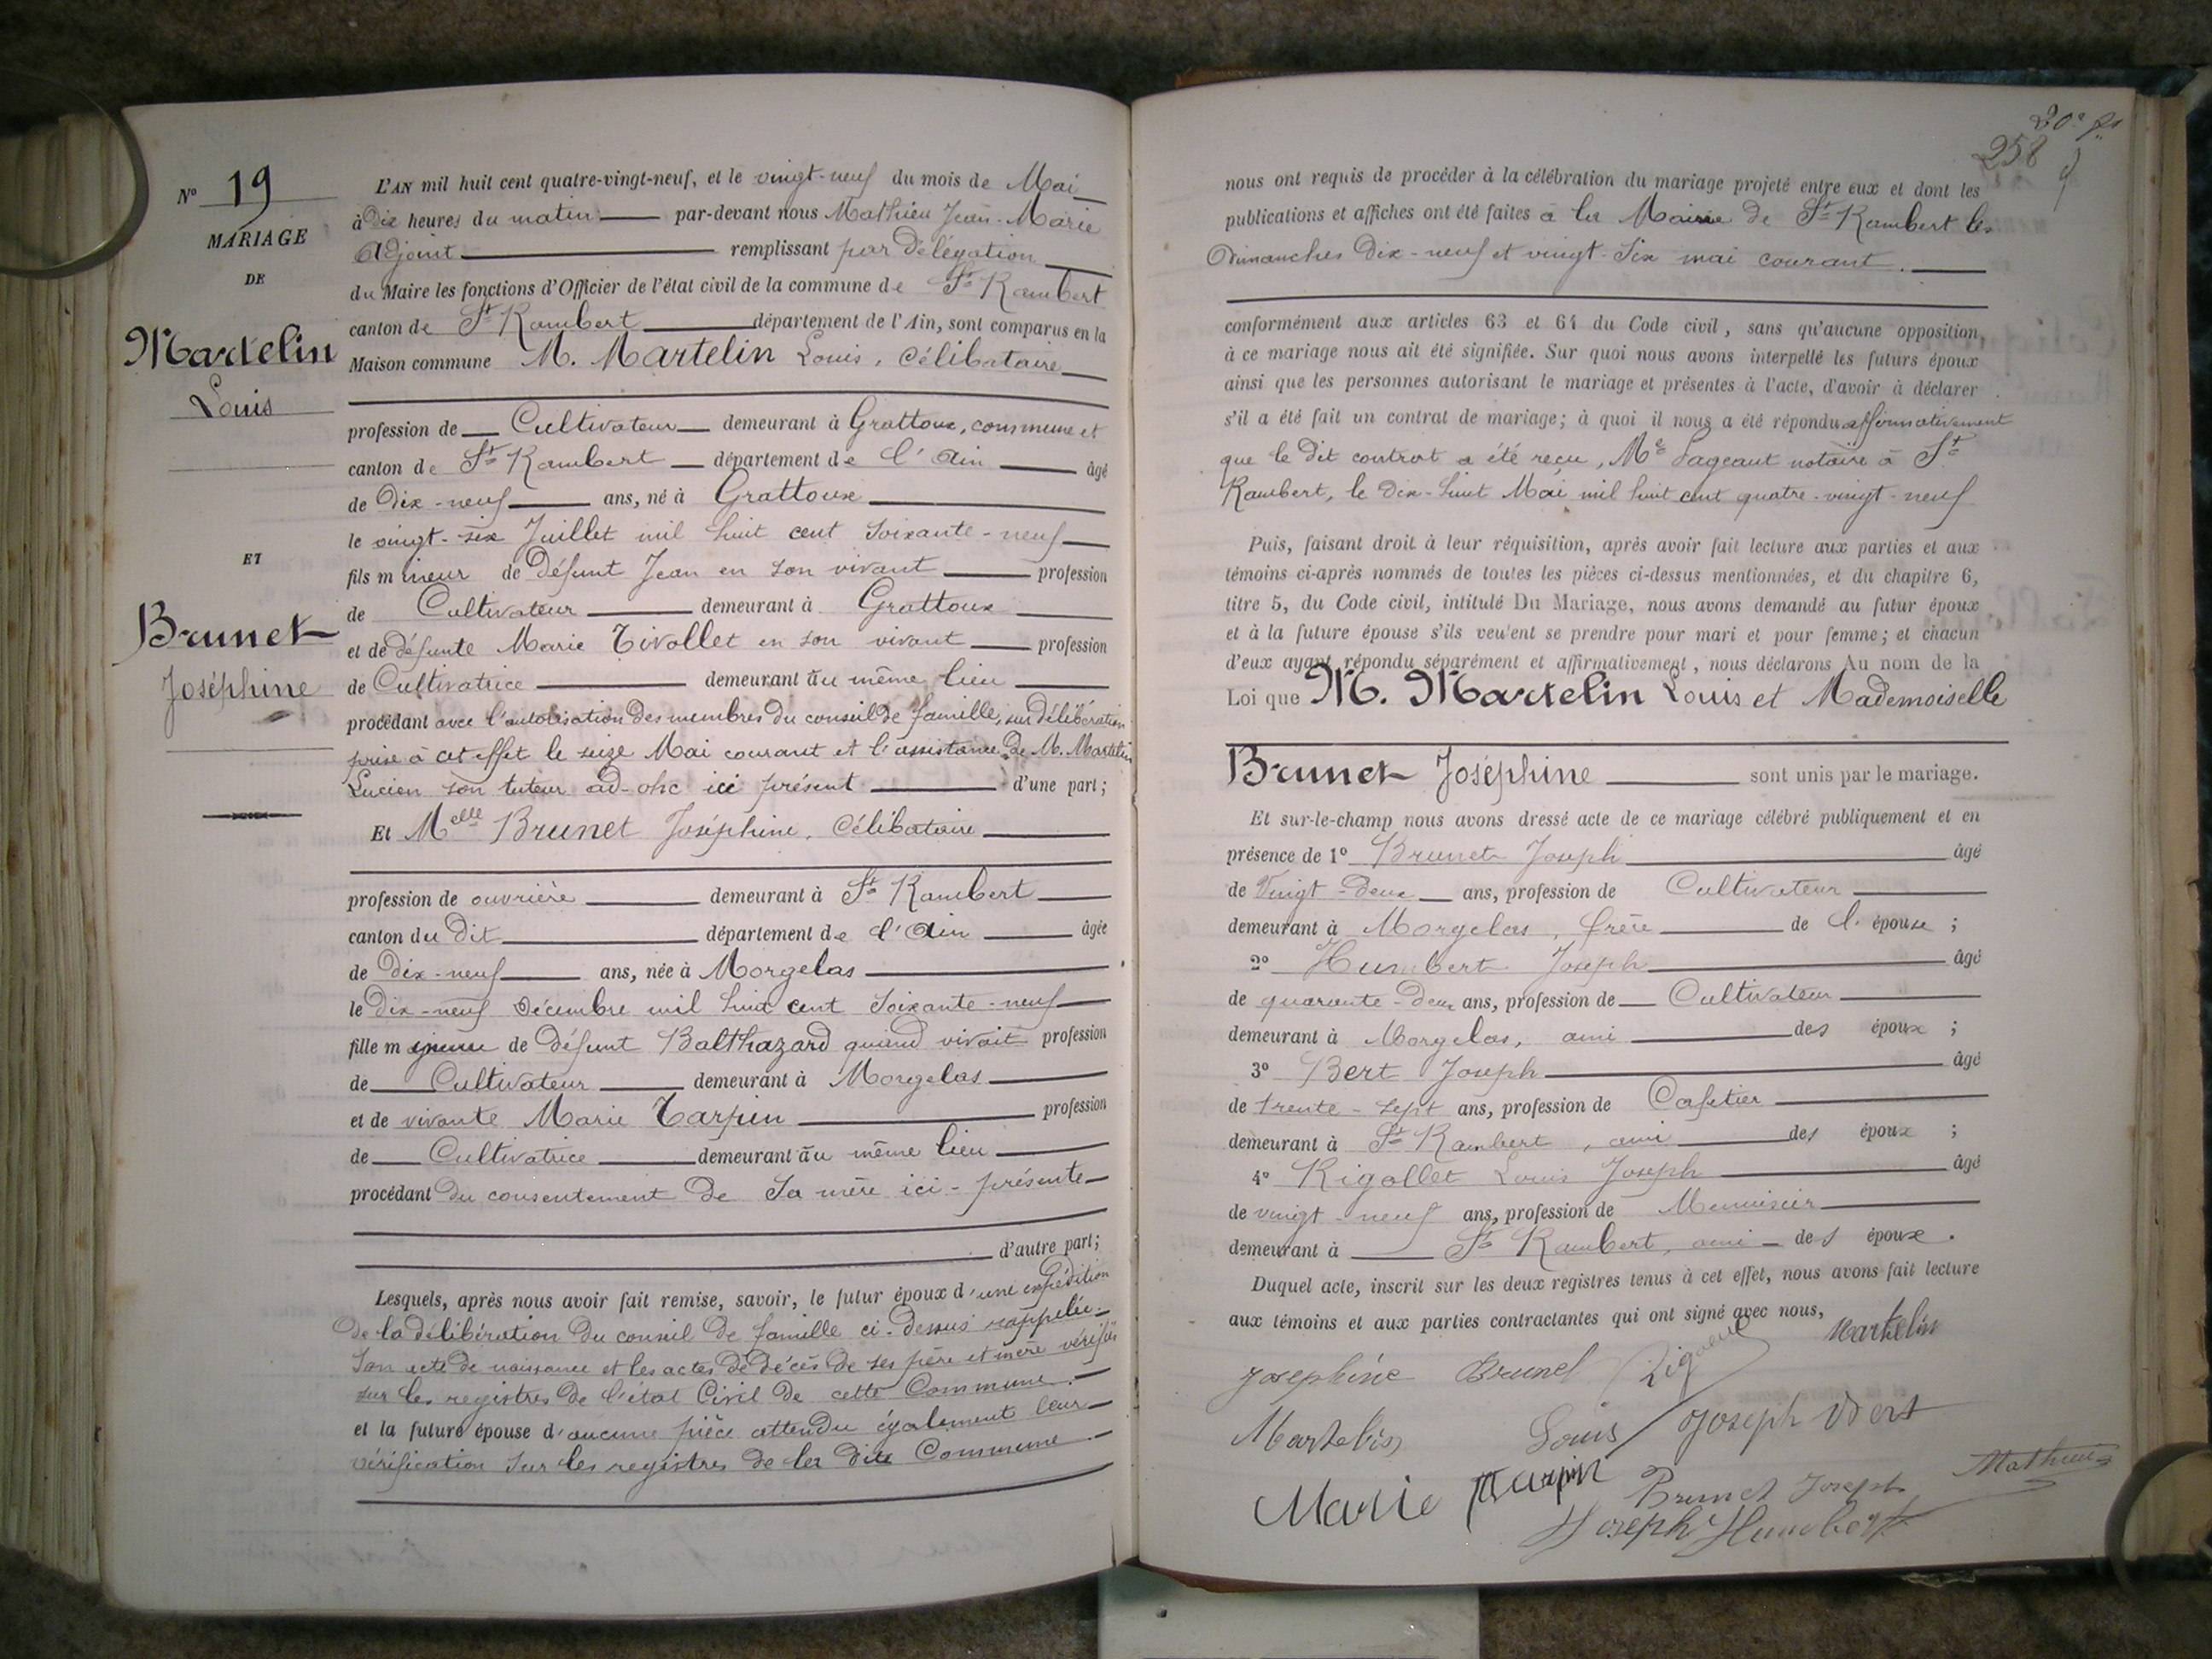 N° 19
MARIAGE
DE
Martelin
Louis
ET
Brunet
Joséphine
L'AN mil huit cent quatre-vingt-neuf, et le vingt-neuf du mois de Mai
à Dix heures du matin par-devant nous Mathieu Jean-Marie
Adjoint remplissant par délégation
du Maire les fonctions d'Officier de l'état civil de la commune de St Rambert
canton de St Rambert département de l'Ain, sont comparus en la
Maison commune M. Martelin Louis, Célibataire
profession de Cultivateur demeurant à Grattoux, commune et
canton de St Rambert département de l'Ain âgé
de Dix-neuf ans, né à Grattoux
le vingt-six Juillet mil huit cent soixante-neuf
fils mineur de Défunt Jean en son vivant profession
de Cultivateur demeurant à Grattoux
et de défunte Marie Tivollet en son vivant profession
de Cultivatrice demeurant au même lieu
procédant avec l'autorisation des membres du conseil de famille, sur délibération
prise à cet effet le seize Mai courant et l'assistance de M. Martelin
Lucien son tuteur ad-ohc ici présent d'une part;
Et Melle Brunet Joséphine, Célibataire
profession de ouvrière demeurant à St Rambert
canton du dit département de l'Ain âgée
de Dix-neuf ans, née à Morgelas
le Dix-neuf Décembre mil huit cent soixante-neuf
fille mineure de Défunt Balthazard quand vivait profession
de Cultivateur demeurant à Morgelas
et de vivante Marie Tarpin profession
de Cultivatrice demeurant au même lieu
procédant du consentement de Sa mère ici-présente
d'autre part;
Lesquels, après nous avoir fait remise, savoir, le futur époux d'une expédition
De la délibération du conseil de famille ci-dessus rappelée
Son acte de naissance et les actes de décès de ses père et mère vérifiés
sur les registres de l'état Civil de cette Commune.
et la future épouse d'aucune pièce attendu également leur
vérification sur les registres de la dite Commune
258
nous ont requis de procéder à la célébration du mariage projeté entre eux et dont les
publications et affiches ont été faites à la Mairie de St Rambert les
Dimanches Dix-neuf et vingt-six mai courant.
conformément aux articles 63 et 64 du Code civil, sans qu'aucune opposition
à ce mariage nous ait été signifiée. Sur quoi nous avons interpellé les futurs époux
ainsi que les personnes autorisant le mariage et présentes à l'acte, d'avoir à déclarer
s'il a été fait un contrat de mariage; à quoi il nous a été répondu affirmativement
que le dit contrat a été reçu, Me Pageaut notaire à St
Rambert, le Dix-huit Mai mil huit cent quatre-vingt-neuf
Puis, faisant droit à leur réquisition, après avoir fait lecture aux parties et aux
témoins ci-après nommés de toutes les pièces ci-dessus mentionnées, et du chapitre 6,
titre 5, du Code civil, intitulé Du Mariage, nous avons demandé au futur époux
et à la future épouse s'ils veulent se prendre pour mari et pour femme; et chacun
d'eux ayant répondu séparément et affirmativement, nous déclarons Au nom de la
Loi que M. Martelin Louis et Mademoiselle
Brunet Joséphine sont unis par le mariage.
Et sur-le-champ nous avons dressé acte de ce mariage célébré publiquement et en
présence de 1° Brunet Joseph âgé
de Vingt-deux ans, profession de Cultivateur
demeurant à Morgelas, frère de l'épouse;
2° Humbert Joseph âgé
de quarante-deux ans, profession de Cultivateur
demeurant à Morgelas, ami des époux;
3° Bert Joseph âgé
de trente-sept ans, profession de Cafetier
demeurant à St Rambert, ami des époux;
4° Rigollet Louis Joseph âgé
de vingt-neuf ans, profession de Menuisier
demeurant à St Rambert, ami des époux.
Duquel acte, inscrit sur les deux registres tenus à cet effet, nous avons fait lecture
aux témoins et aux parties contractantes qui ont signé avec nous,
Martelin
Joséphine Brunet
Martelin Louis Joseph Bert
Marie Tarpin Brunet Joseph Mathieu
Joseph Humbert